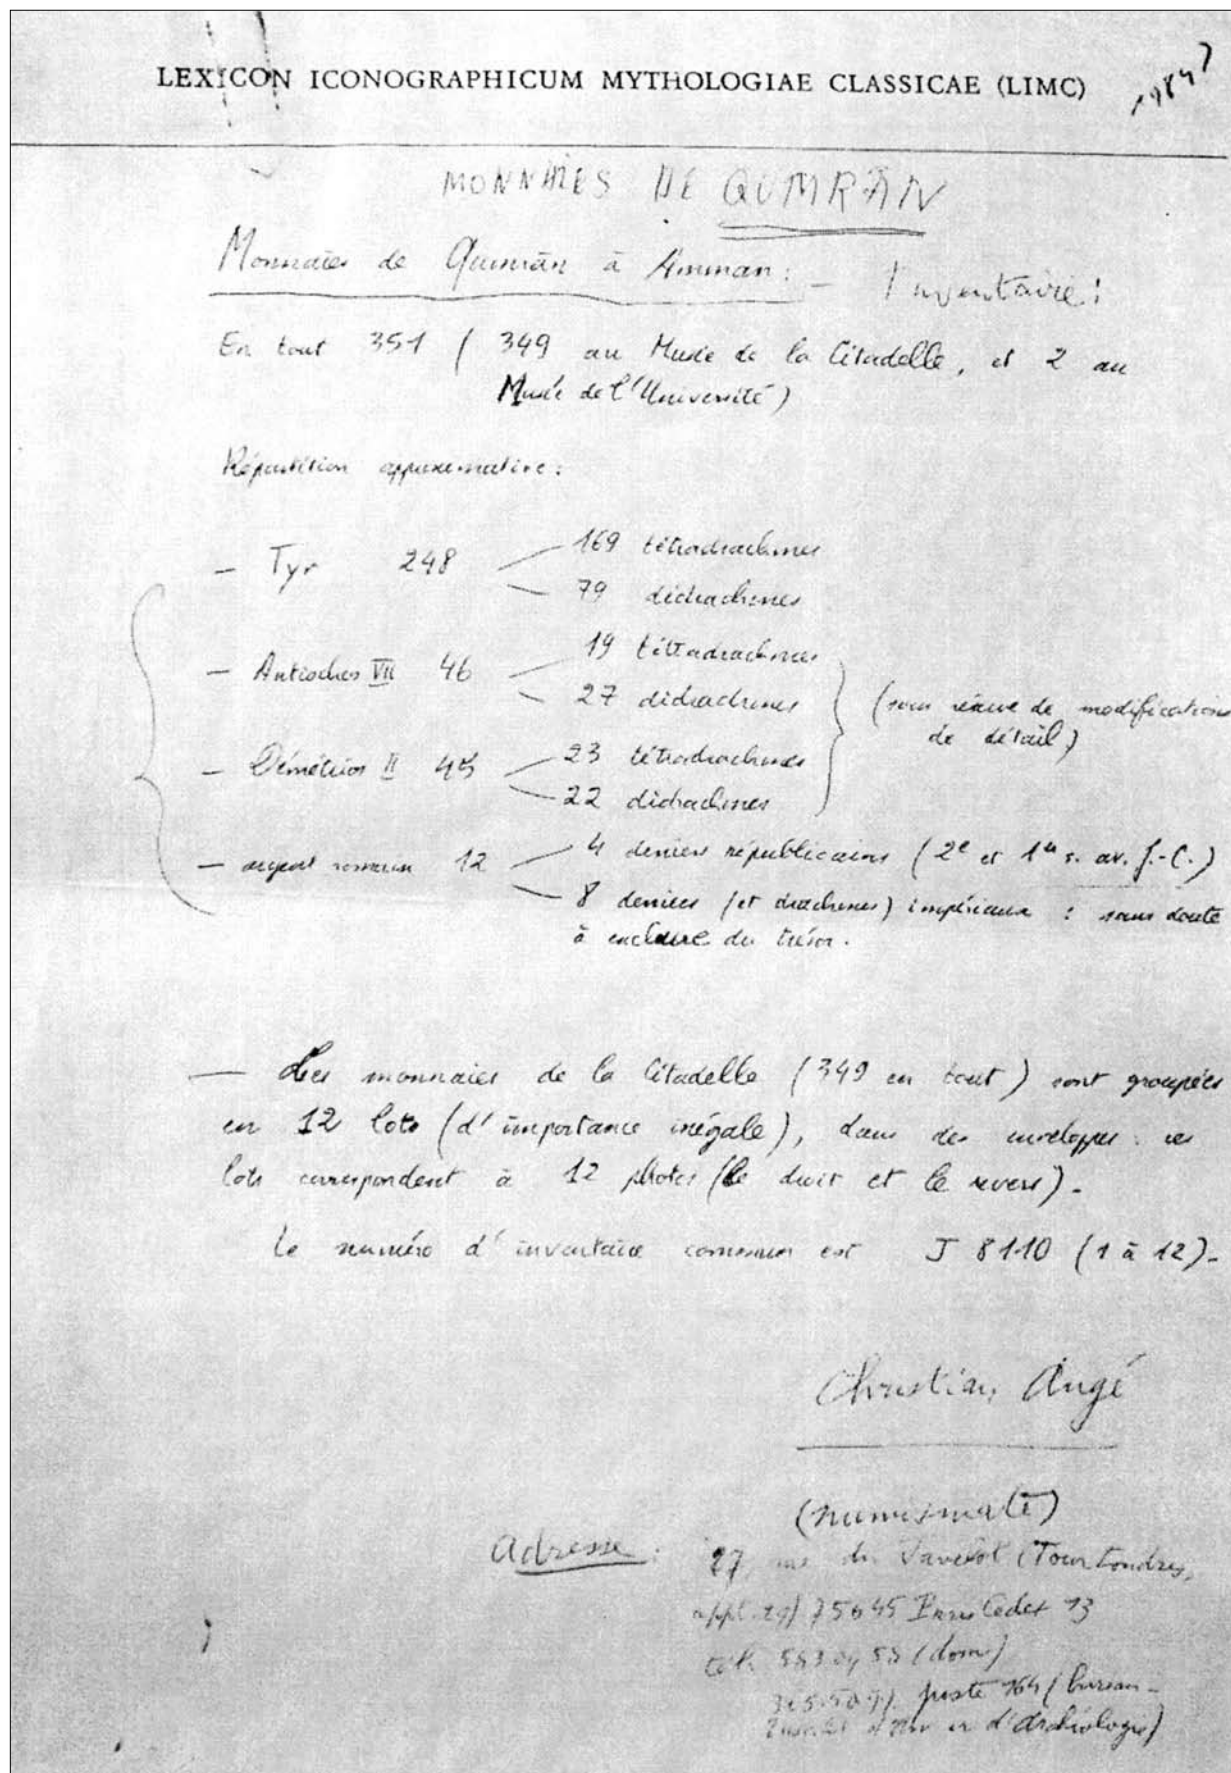 LEXICON ICONOGRAPHICUM MYTHOLOGIAE CLASSICAE (LIMC)
MONNAIES DE QUMRÂN
Monnaies de Qumrân à Amman : – Inventaire :
En tout 351 ( 349 au Musée de la Citadelle, et 2 au
Musée de l'Université )
Répartition approximative :
– Tyr 248
169 tétradrachmes
79 didrachmes
– Antiochos VII 46
19 tétradrachmes
27 didrachmes
– Démétrios II 45
23 tétradrachmes
22 didrachmes
(sous réserve de modifications
de détail)
– argent romain 12
4 deniers républicains ( 2e et 1er s. av. J.-C. )
8 deniers (et drachmes) impériaux : sans doute
à exclure du trésor.
— Les monnaies de la Citadelle ( 349 en tout ) sont groupées
en 12 lots (d'importance inégale), dans des enveloppes : ces
lots correspondent à 12 photos (le droit et le revers).
Le numéro d'inventaire commun est J 8110 (1 à 12).
Christian Augé
(numismate)
Adresse : 27 rue du Javelot (Tour Londres,
75645 Paris Cedex 13
(dom)
poste 164 (bureau –
d'Archéologie)